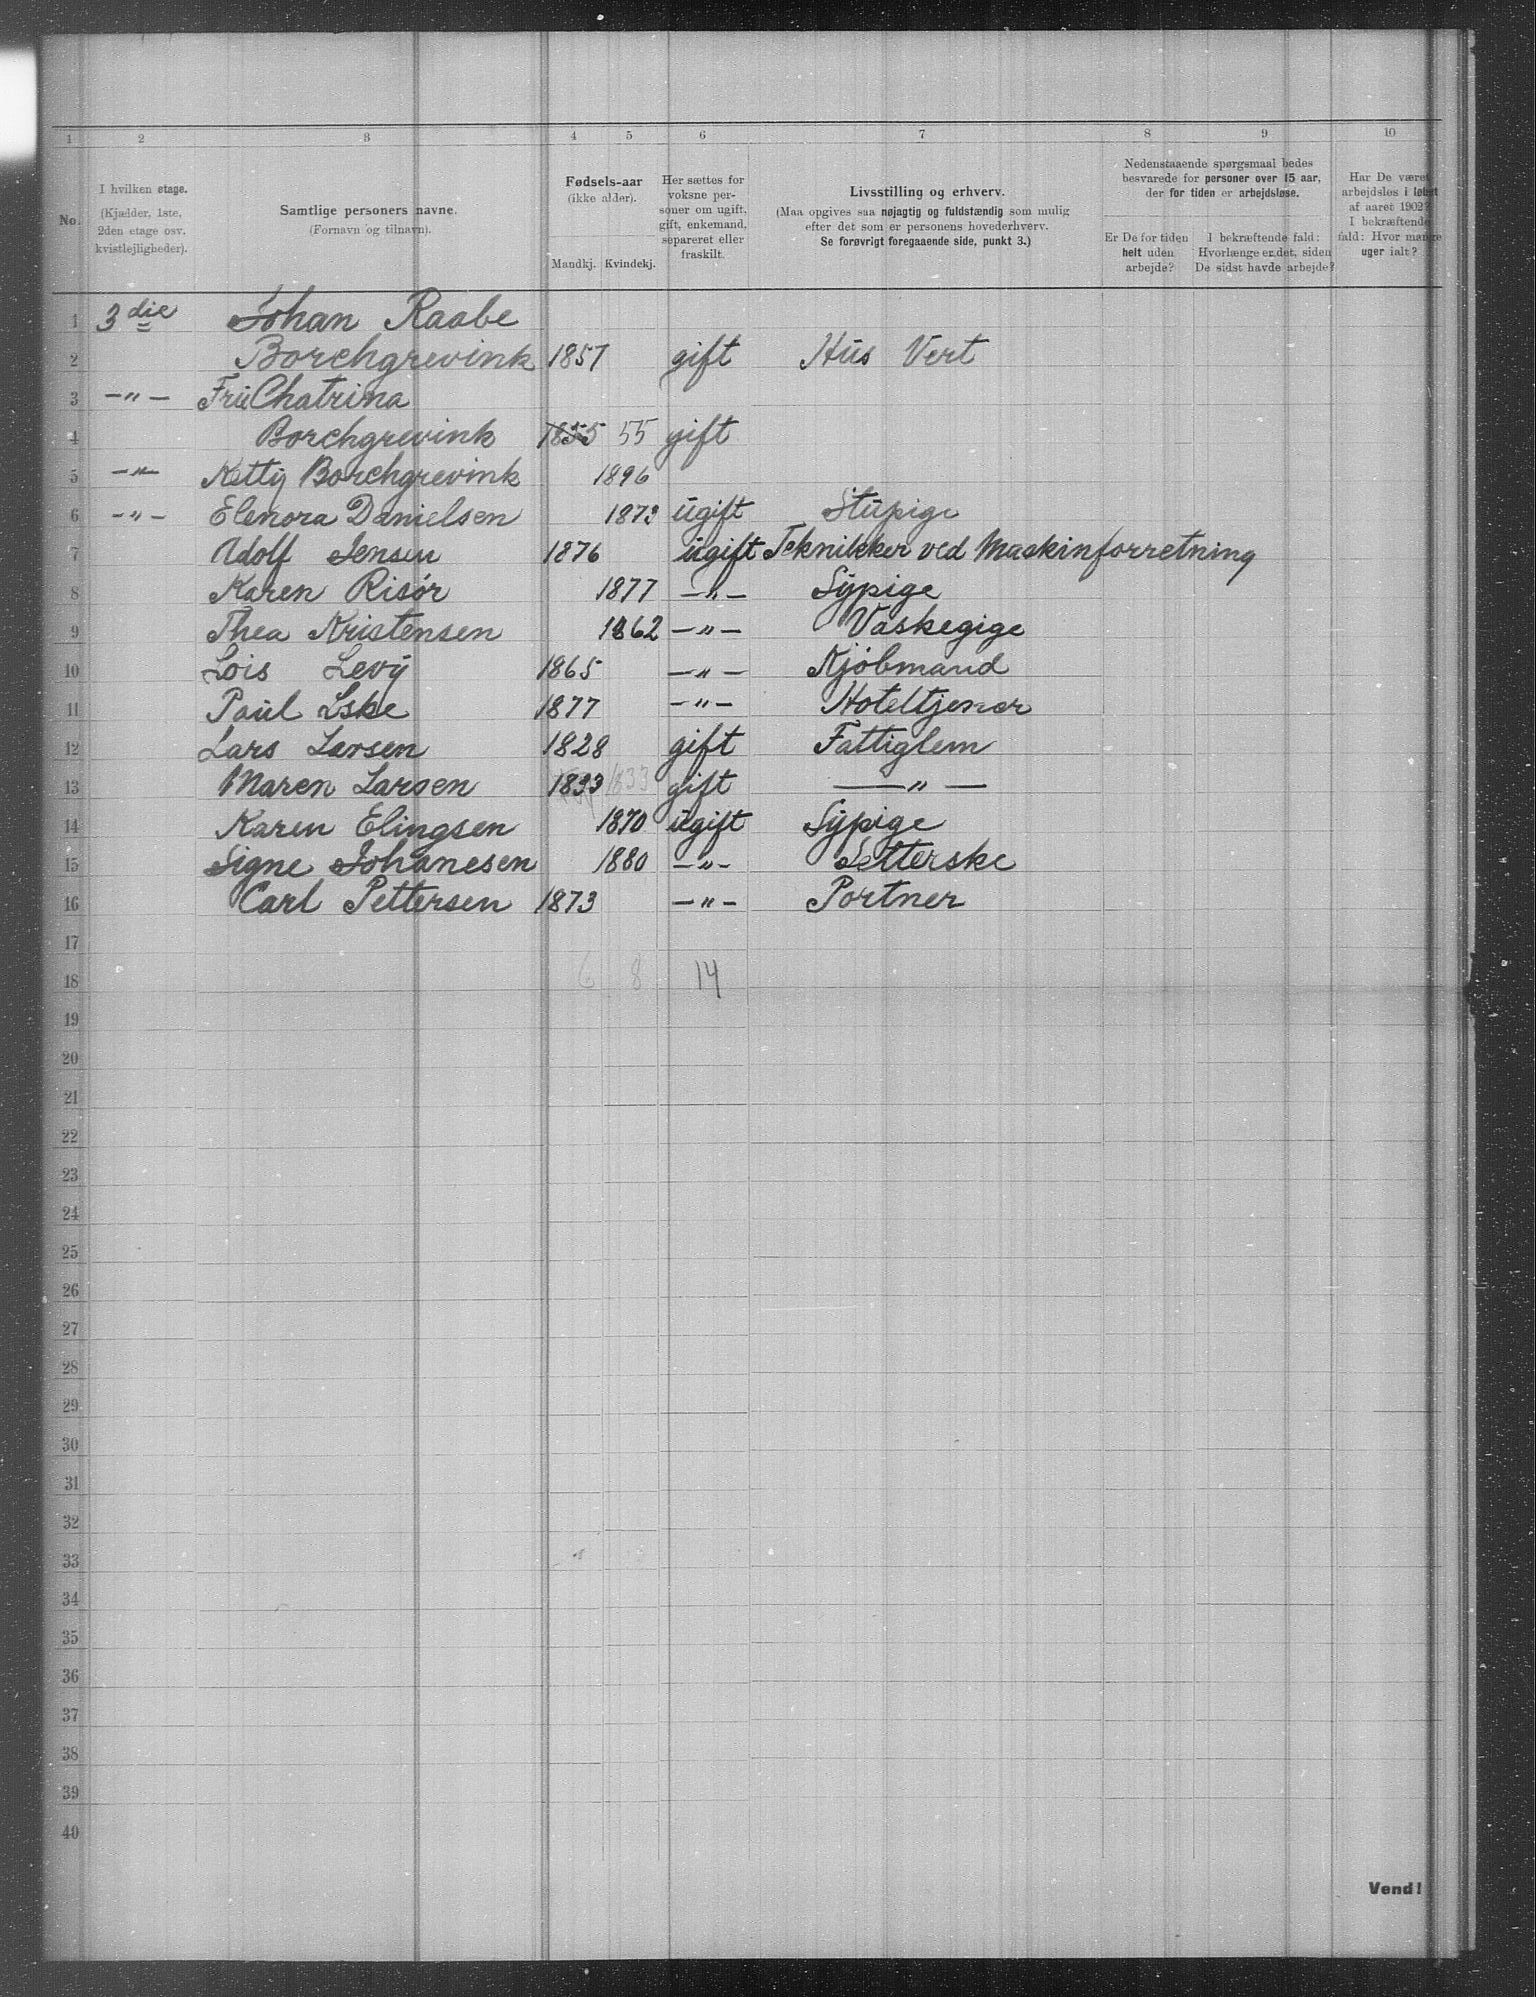 1 2 3 4 5 6 7 8 9 10
No.
I hvilken etage.
(Kjælder, 1ste,
2den etage osv.
kvistlejligheder).
Samtlige personers navne.
(Fornavn og tilnavn).
Fødsels-aar
(ikke alder).
Mandkj. Kvindekj.
Her sættes for
voksne per-
soner om ugift,
gift, enkemand,
separeret eller
fraskilt.
Livsstilling og erhverv.
(Maa opgives saa nøjagtig og fuldstændig som mulig
efter det som er personens hovederhverv.
Se forøvrigt foregaaende side, punkt 3.)
Nedenstaaende spørgsmaal bedes
besvarede for personer over 15 aar,
der for tiden er arbejdsløse.
Er De for tiden
helt uden
arbejde?
I bekræftende fald:
Hvorlænge er det, siden
De sidst havde arbejde?
Har De været
arbejdsløs i løbet
af aaret 1902?
I bekræftende
fald: Hvor mange
uger ialt?
1 3die Johan Raabe
2 Borchgrevink 1857 gift Hus Vert
3 —"— Frü Chatrina
4 Borchgrevink 1855 55 gift
5 —"— Ketty Borchgrevink 1896
6 —"— Elenora Danielsen 1873 ugift Stüpige
7 Adolf Jensen 1876 ugift Teknikker ved Maskinforretning
8 Karen Risör 1877 —"— Sypige
9 Thea Kristensen 1862 —"— Vaskegige
10 Lois Levy 1865 —"— Kjöbmand
11 Paul Eske 1877 —"— Hoteltjener
12 Lars Larsen 1828 gift Fattiglem
13 Maren Larsen 1833 1833 gift —"—
14 Karen Elingsen 1870 ugift Sypige
15 Signe Johanesen 1880 —"— Setterske
16 Carl Pettersen 1873 —"— Portner
17
18 6 8 14
19
20
21
22
23
24
25
26
27
28
29
30
31
32
33
34
35
36
37
38
39
40
Vend!